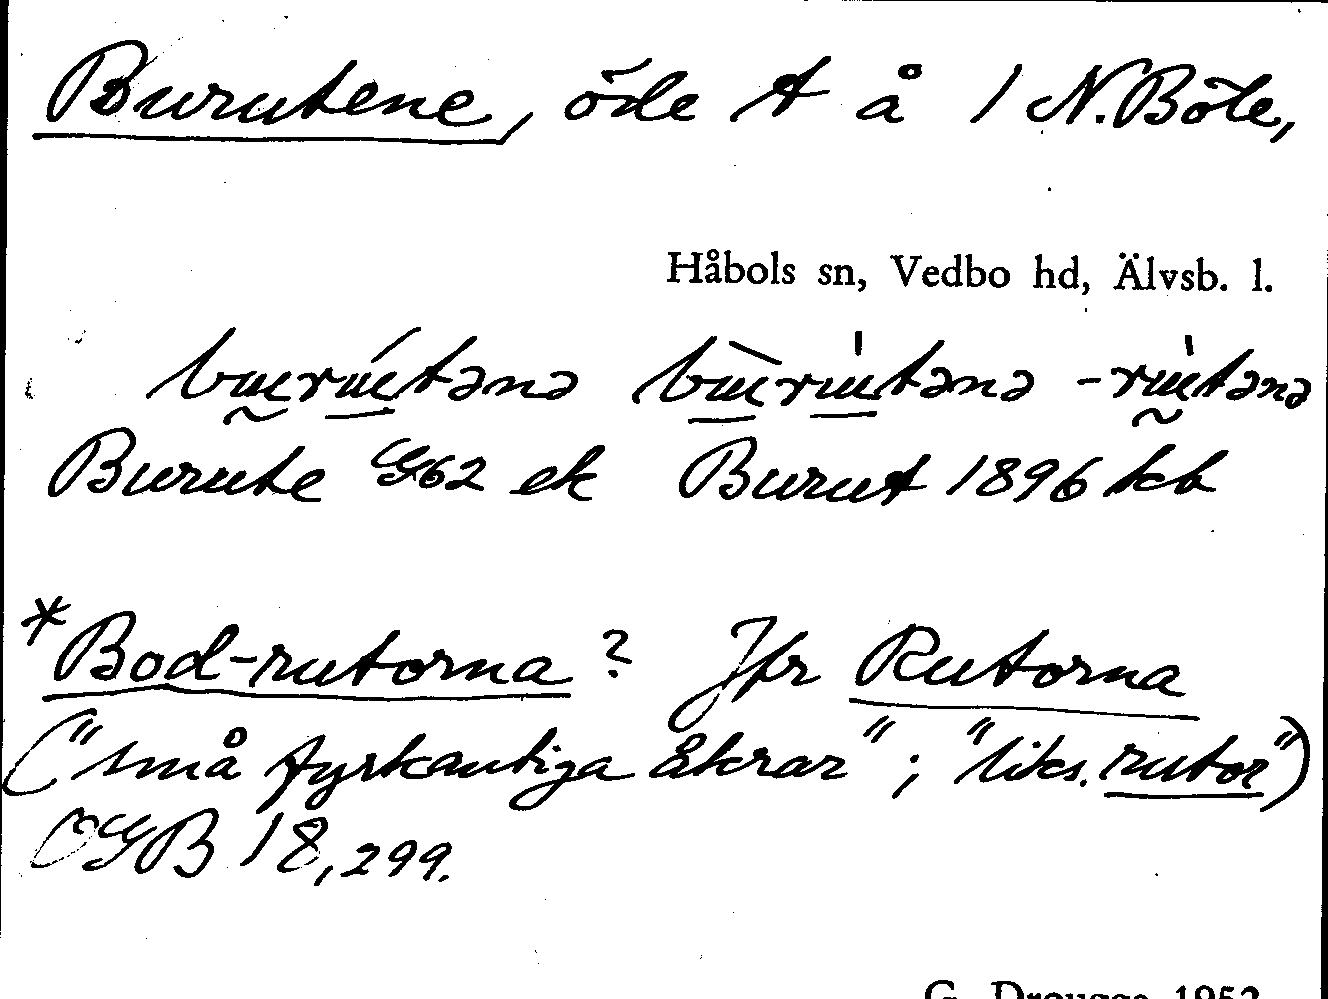 Burutene, öde t å 1 N. Böle,
Håbols sn, Vedbo hd, Älvsb. l.
Burute G62 ek Burut 1896 kb
*Bod-rutorna? Jfr Rutorna
("små fyrkantiga åkrar"; "liks. rutor")
OGB 18,299.
G. Drougge 1952